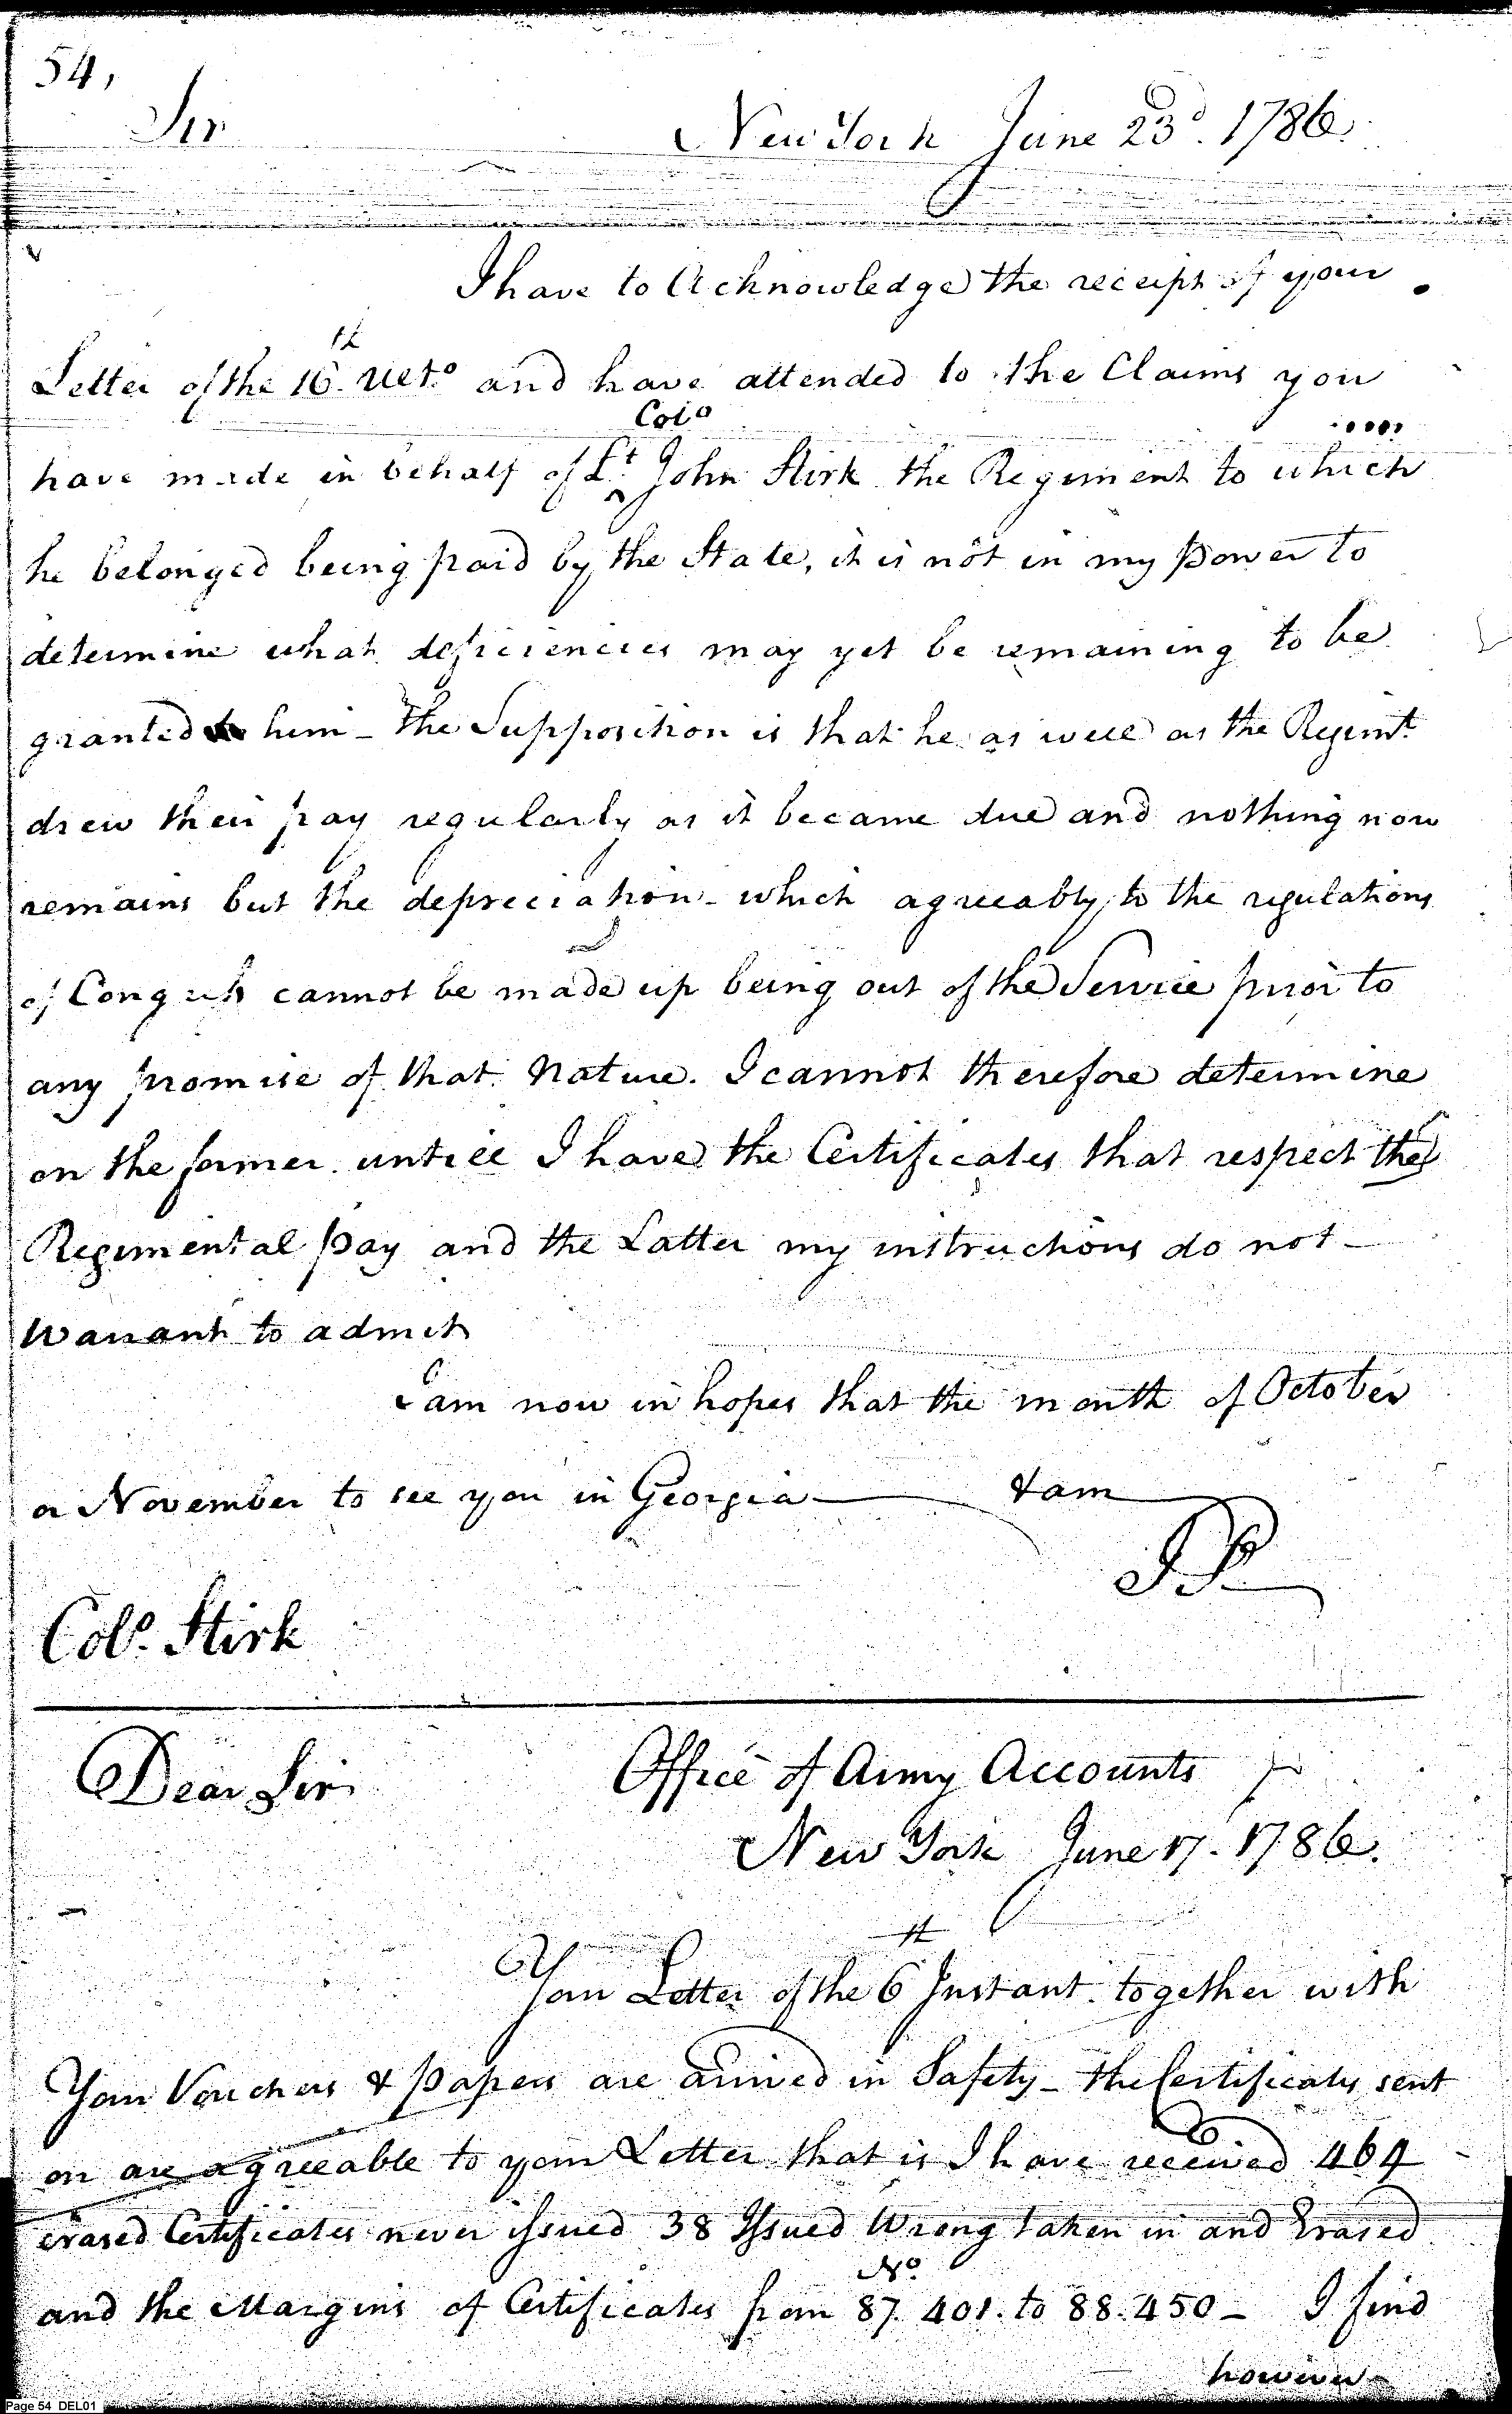 54,
Sir
New York June 23d. 1786.
I have to Acknowledge the receipt of your
Letter of the 16th. Ulto. and have attended to the Claims you
have made in behalf of Lt. Colo John Stirk the Regiment to which
he belonged being paid by the State, it is not in my Power to
determine what deficiencies may yet be remaining to be
granted to him - The Supposition is that he as well as the Regimt.
drew their pay regularly as it became due and nothing now
remains but the depreciation - which agreeably to the regulations
of Congress cannot be made up being out of the Service prior to
any promise of that Nature. I cannot therefore determine
on the former untill I have the Certificates that respect the
Regimental Pay and the Latter my instructions do not -
Warrant to admit
I am now in hopes that the month of October
or November to see you in Georgia - & am
JP
Colo. Stirk
Dear Sir
Office of Army Accounts
New York June 17. 1786.
Your Letter of the 6th Instant together with
Your Vouchers & Papers are arrived in Safety - the Certificates sent
on are agreeable to your Letter that is I have received 464
erased Certificates never issued 38 Issued Wrong taken in and Erased
and the Margins of Certificates from No. 87.401. to 88.450 - I find
however
Page 54 DEL01